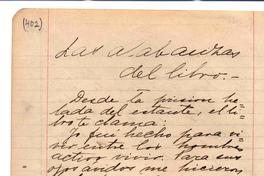 (402)
Las alabanzas
del libro.-
Desde la prision he-
lada del estante, el li-
bro te clama:
Yo fuí hecho para vi-
vir entre los hombres
activo vivir. Para sus
me hicieron